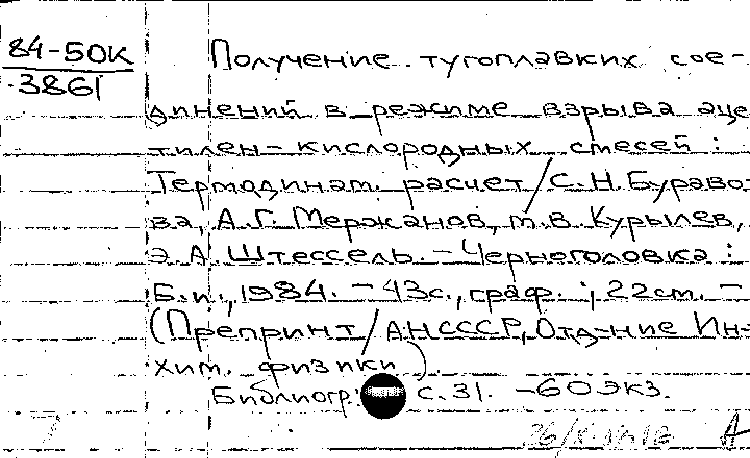 84-50К
3861
Получение тугоплавких сое-
динений в режиме взрыва аце
тилен-кислородных смесей:
Термодинам. расчет/С.Н.Бураво
ва, А.Г. Мержанов, т.в. Курылев,
Э.А. Штессель. - Черноголовка:
Б.и., 1984. - 43с., граф.; 22см. -
(Препринт/АН СССР, Отд-ние Ин-
хим. физики).
Библиогр: с.31. - 60 экз.
А